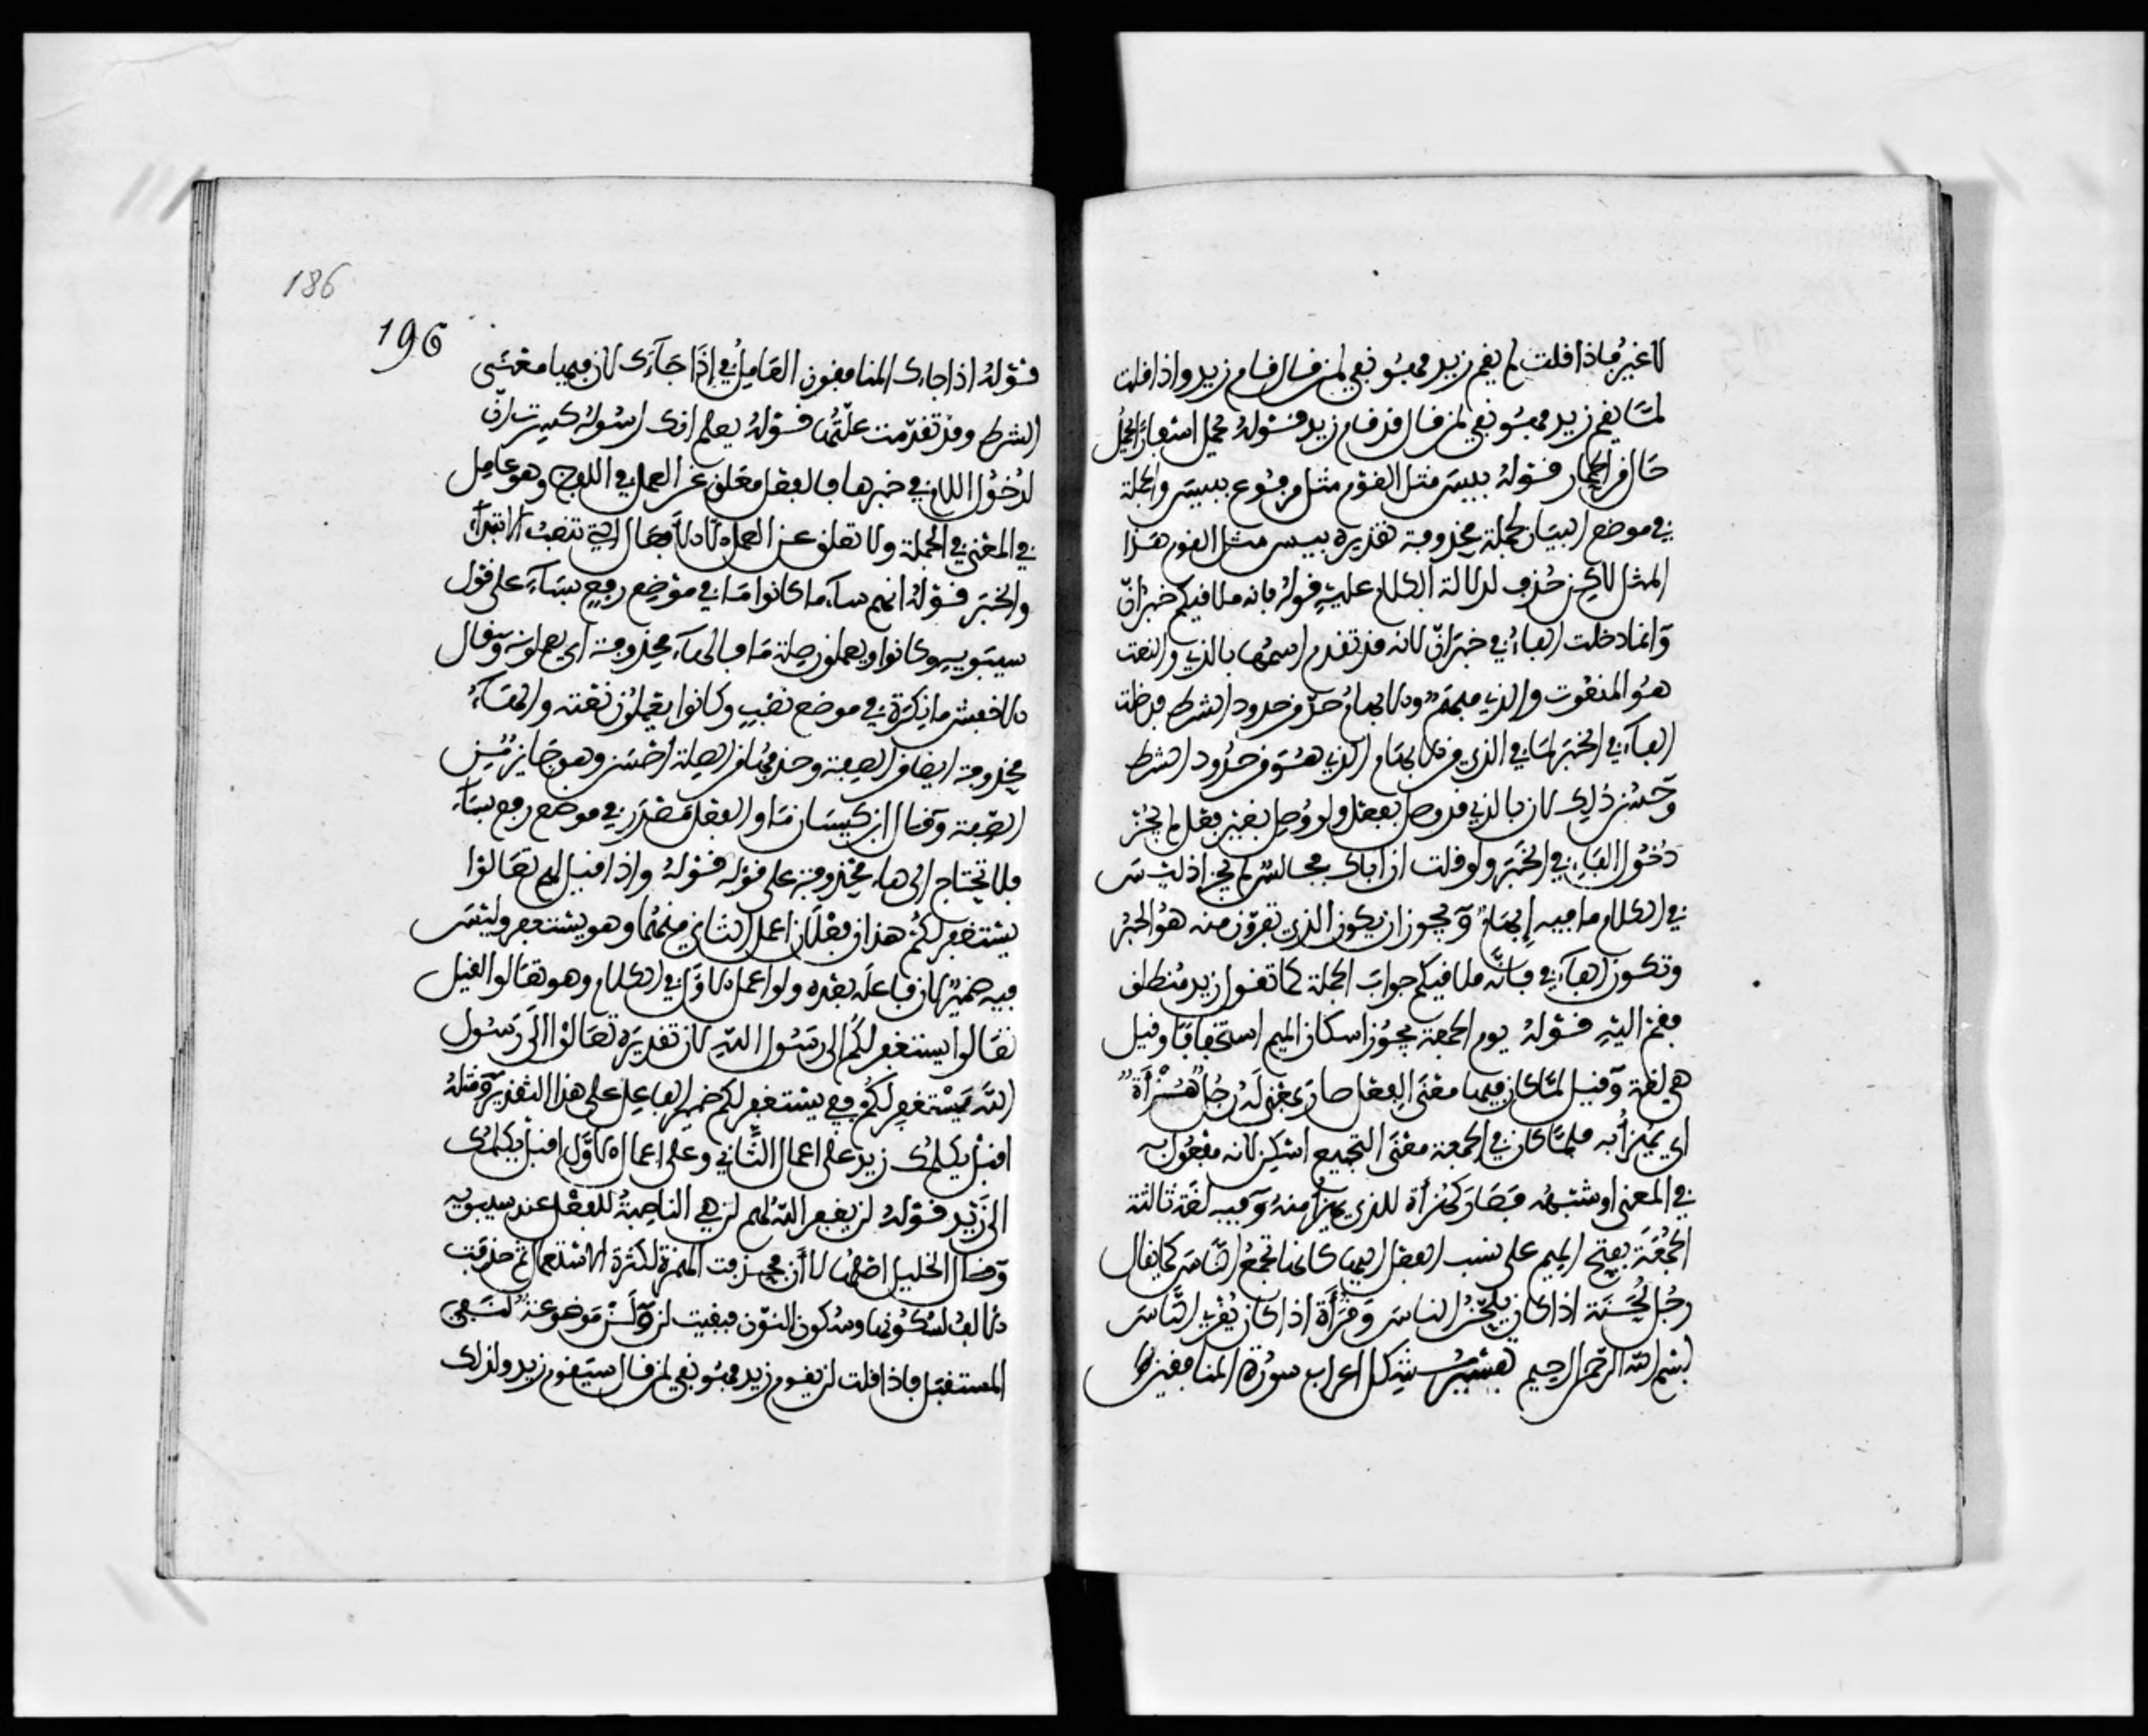 لا غير فاذا قلت لم يقم زيد فهو نفي لمن قال قام زيد واذا قلت
لمّا يقم زيد فهو نفي لمن قال قد قام زيد قوله يحمل اسفارا يحمل
حال من الحمار قوله بيس مثل القوم مثل مرفوع ببيس والجملة
في موضع البيان لجملة محذوفة تقديره بيس مثل القوم هذا
المثل لاكن حذف لدلالة الكلام عليه قوله فانه ملاقيكم خبر انّ
وانما دخلت الفاء في خبر انّ لانه قد تقدم اسمها بالذي والنعت
هو المنعوت والذي مبهم والابهام حدّ من حدود الشرط فدخلت
الفاء في الخبر لما في الذي من الابهام الذي هو من حدود الشرط
وحسن ذلك لان بالذي قد وصل بفعل ولو وصل بغير فعل لم يجز
دخول الفاء في الخبر ولو قلت ان اباك فجالس لم يجز اذ ليس
في الكلام ما فيه إبهام ويجوز ان يكون الذي تفرون منه هو الخبر
وتكون الفاء في فانّه ملاقيكم جواب الجملة كما تقول زيد منطلق
فقم اليه قوله يوم الجمعة يجوز اسكان الميم استخفافا وقيل
هي لغة وقيل لمّا كان فيها معنى الفعل صار بمنزلة رجل هُزْأَة
اي يهزأ به فلمّا كان في الجمعة معنى التجميع اسكن لانه مفعول به
في المعنى او شبهه فصار كهزأة للذي يهزأ منه وفيه لغة ثالثة
الجمعة بفتح الميم على نسب الفعل اليها كانها تجمع الناس كما يقال
رجل لحنة اذا كان يلحّن الناس وقرأة اذا كان يقرئ الناس
بسم الله الرحمن الرحيم تفسير مشكل اعراب سورة المنافقين
186
196
قوله اذا جاءك المنافقون العامل في إذا جاءك لان فيها معنى
الشرط وقد تقدّمت علّتها قوله يعلم انك لرسوله كسرت إنّ
لدخول اللام في خبرها فالفعل معلق عن العمل في اللفظ وهو عامل
في المعنى في الجملة ولا تعلق عن العمل الا الأفعال التي تنصب الابتداء
والخبر قوله انهم ساء ما كانوا ما في موضع رفع بساء على قول
سيبويه وكانوا يعملون صلة ما والهاء محذوفة اي يعملونه وقال
الاخفش ما نكرة في موضع نصب وكانوا يعملون نعته والهاء
محذوفة ايضا من الصفة وحذفها من الصلة احسن وهو جايز من
الصفة وقال ابن كيسان ما والفعل مصدر في موضع رفع بساء
فلا تحتاج الى هاء محذوفة على قوله قوله واذا قيل لهم تعالوا
يستغفر لكم هذان فعلان اعمل الثاني منهما وهو يستغفر وليس
فيه ضمير لان فاعله بعده ولو اعمل الاوّل في الكلام وهو تعالوا لقيل
تعالوا يستغفر لكم الى رسول الله لان تقديره تعالوا الى رسول
الله يستغفر لكم ففي يستغفر لكم ضمير الفاعل على هذا التقدير ومثله
اقبل يكلمك زيد على اعمال الثاني وعلى اعمال الاوّل اقبل يكلمك
الى زيد قوله لن يغفر الله لهم لن هي الناصبة للفعل عند سيبويه
وقال الخليل اصلها لا أن فحذفت الهمزة لكثرة الاستعمال ثم حذفت
الالف لسكونها وسكون النون فبقيت لن ولن موضوعة لنفي
المستقبل فاذا قلت لن يقوم زيد فهو نفي لمن قال سيقوم زيد ولذلك